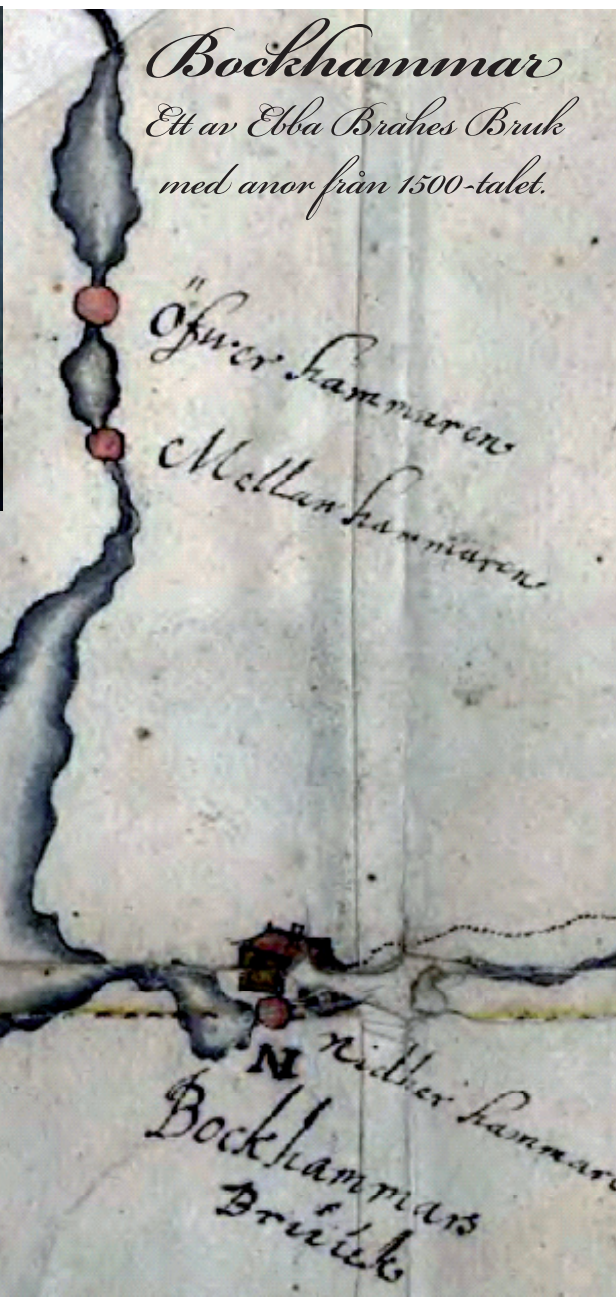 Bockhammar
Ett av Ebba Brahes Bruk
med anor från 1500-talet.
Öfwer hammaren
Mellan hammaren
Nidher hammare
N
Bockhammars
Bruuk